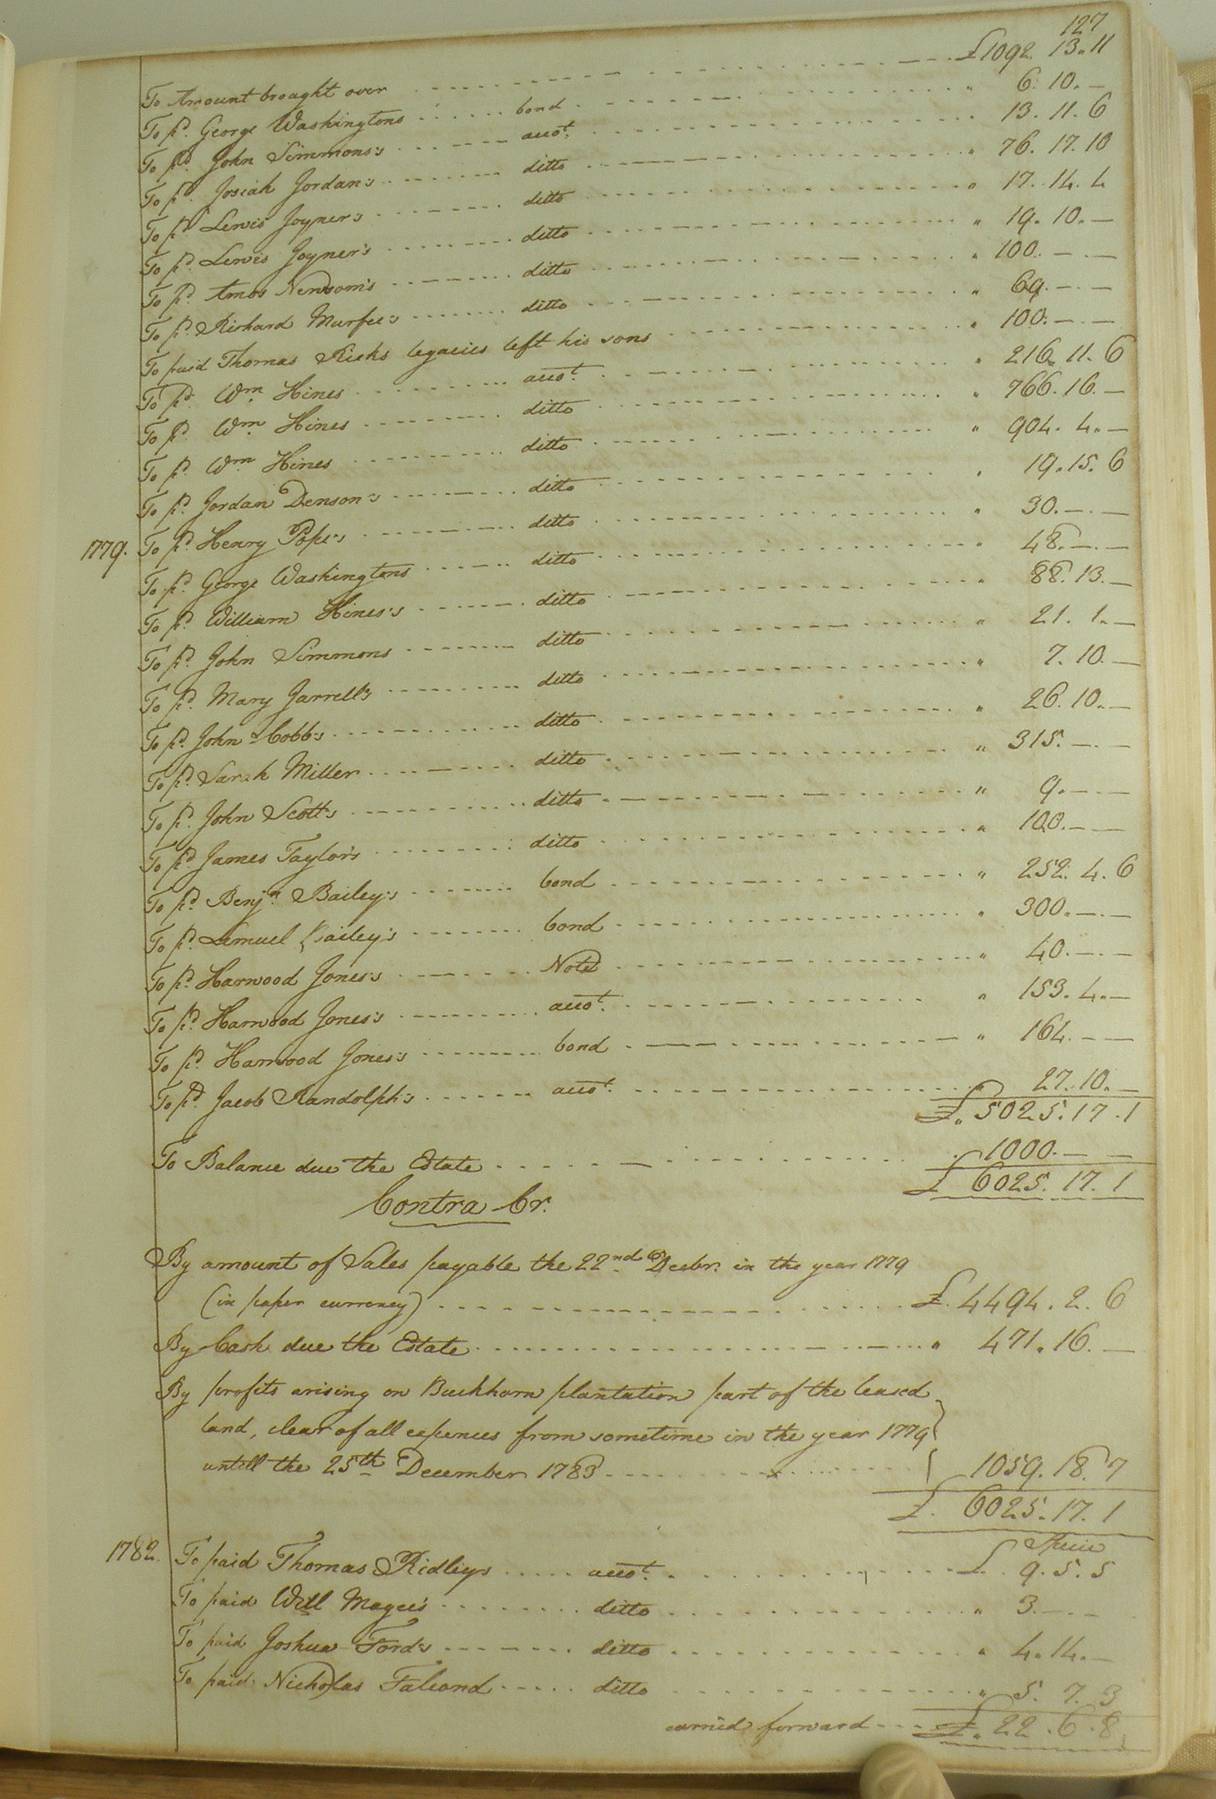 127
To Amount brought over £1092. 13. 11
To pd. George Washingtons bond " 6. 10. —
To pd. John Simmons's acct. " 13. 11. 6
To pd. Josiah Jordan's ditto " 76. 17. 10
To pd. Lewis Joyner's ditto " 17. 14. 4
To pd. Lewis Joyner's ditto " 19. 10. —
To pd. Amos Newsom's ditto " 100. — —
To pd. Richard Murfee's ditto " 69. — —
To paid Thomas Ricks legacies left his sons " 100. — —
To pd. Wm. Hines acct. " 216. 11. 6
To pd. Wm. Hines ditto " 766. 16. —
To pd. Wm. Hines ditto " 904. 4. —
To pd. Jordan Denson's ditto " 19. 15. 6
1779. To pd. Henry Pope's ditto " 30. — —
To pd. George Washingtons ditto " 48. — —
To pd. William Hines's ditto " 88. 13. —
To pd. John Simmons ditto " 21. 1. —
To pd. Mary Jarrell's ditto " 7. 10. —
To pd. John Cobb's ditto " 26. 10. —
To pd. Sarah Miller ditto " 315. — —
To pd. John Scott's ditto " 9. — —
To pd. James Taylor's ditto " 100. — —
To pd. Benjn. Bailey's bond " 252. 4. 6
To pd. Lemuel Bailey's bond " 300. — —
To pd. Harwood Jones's Note " 40. — —
To pd. Harwood Jones's acct. " 153. 4. —
To pd. Harwood Jones's bond " 164. — —
To pd. Jacob Randolph's acct. " 27. 10. —
£. 5025. 17. 1
To Balance due the Estate 1000. — —
£ 6025. 17. 1
Contra Cr.
By amount of Sales payable the 22nd Decbr. in the year 1779
(in paper currency) £. 4494. 2. 6
By Cash due the Estate " 471. 16. —
By profits arising on Buckhorn plantation part of the leased
land, clear of all expences from sometime in the year 1779
untill the 25th December 1783 1059. 18. 7
£. 6025. 17. 1
Specie
1782. To paid Thomas Ridleys acct. £. 9. 5. 5
To paid Will Magee's ditto " 3. — —
To paid Joshua Ford's ditto " 4. 14. —
To paid Nicholas Falcond ditto " 5. 7. 3
carried forward £. 22. 6. 8